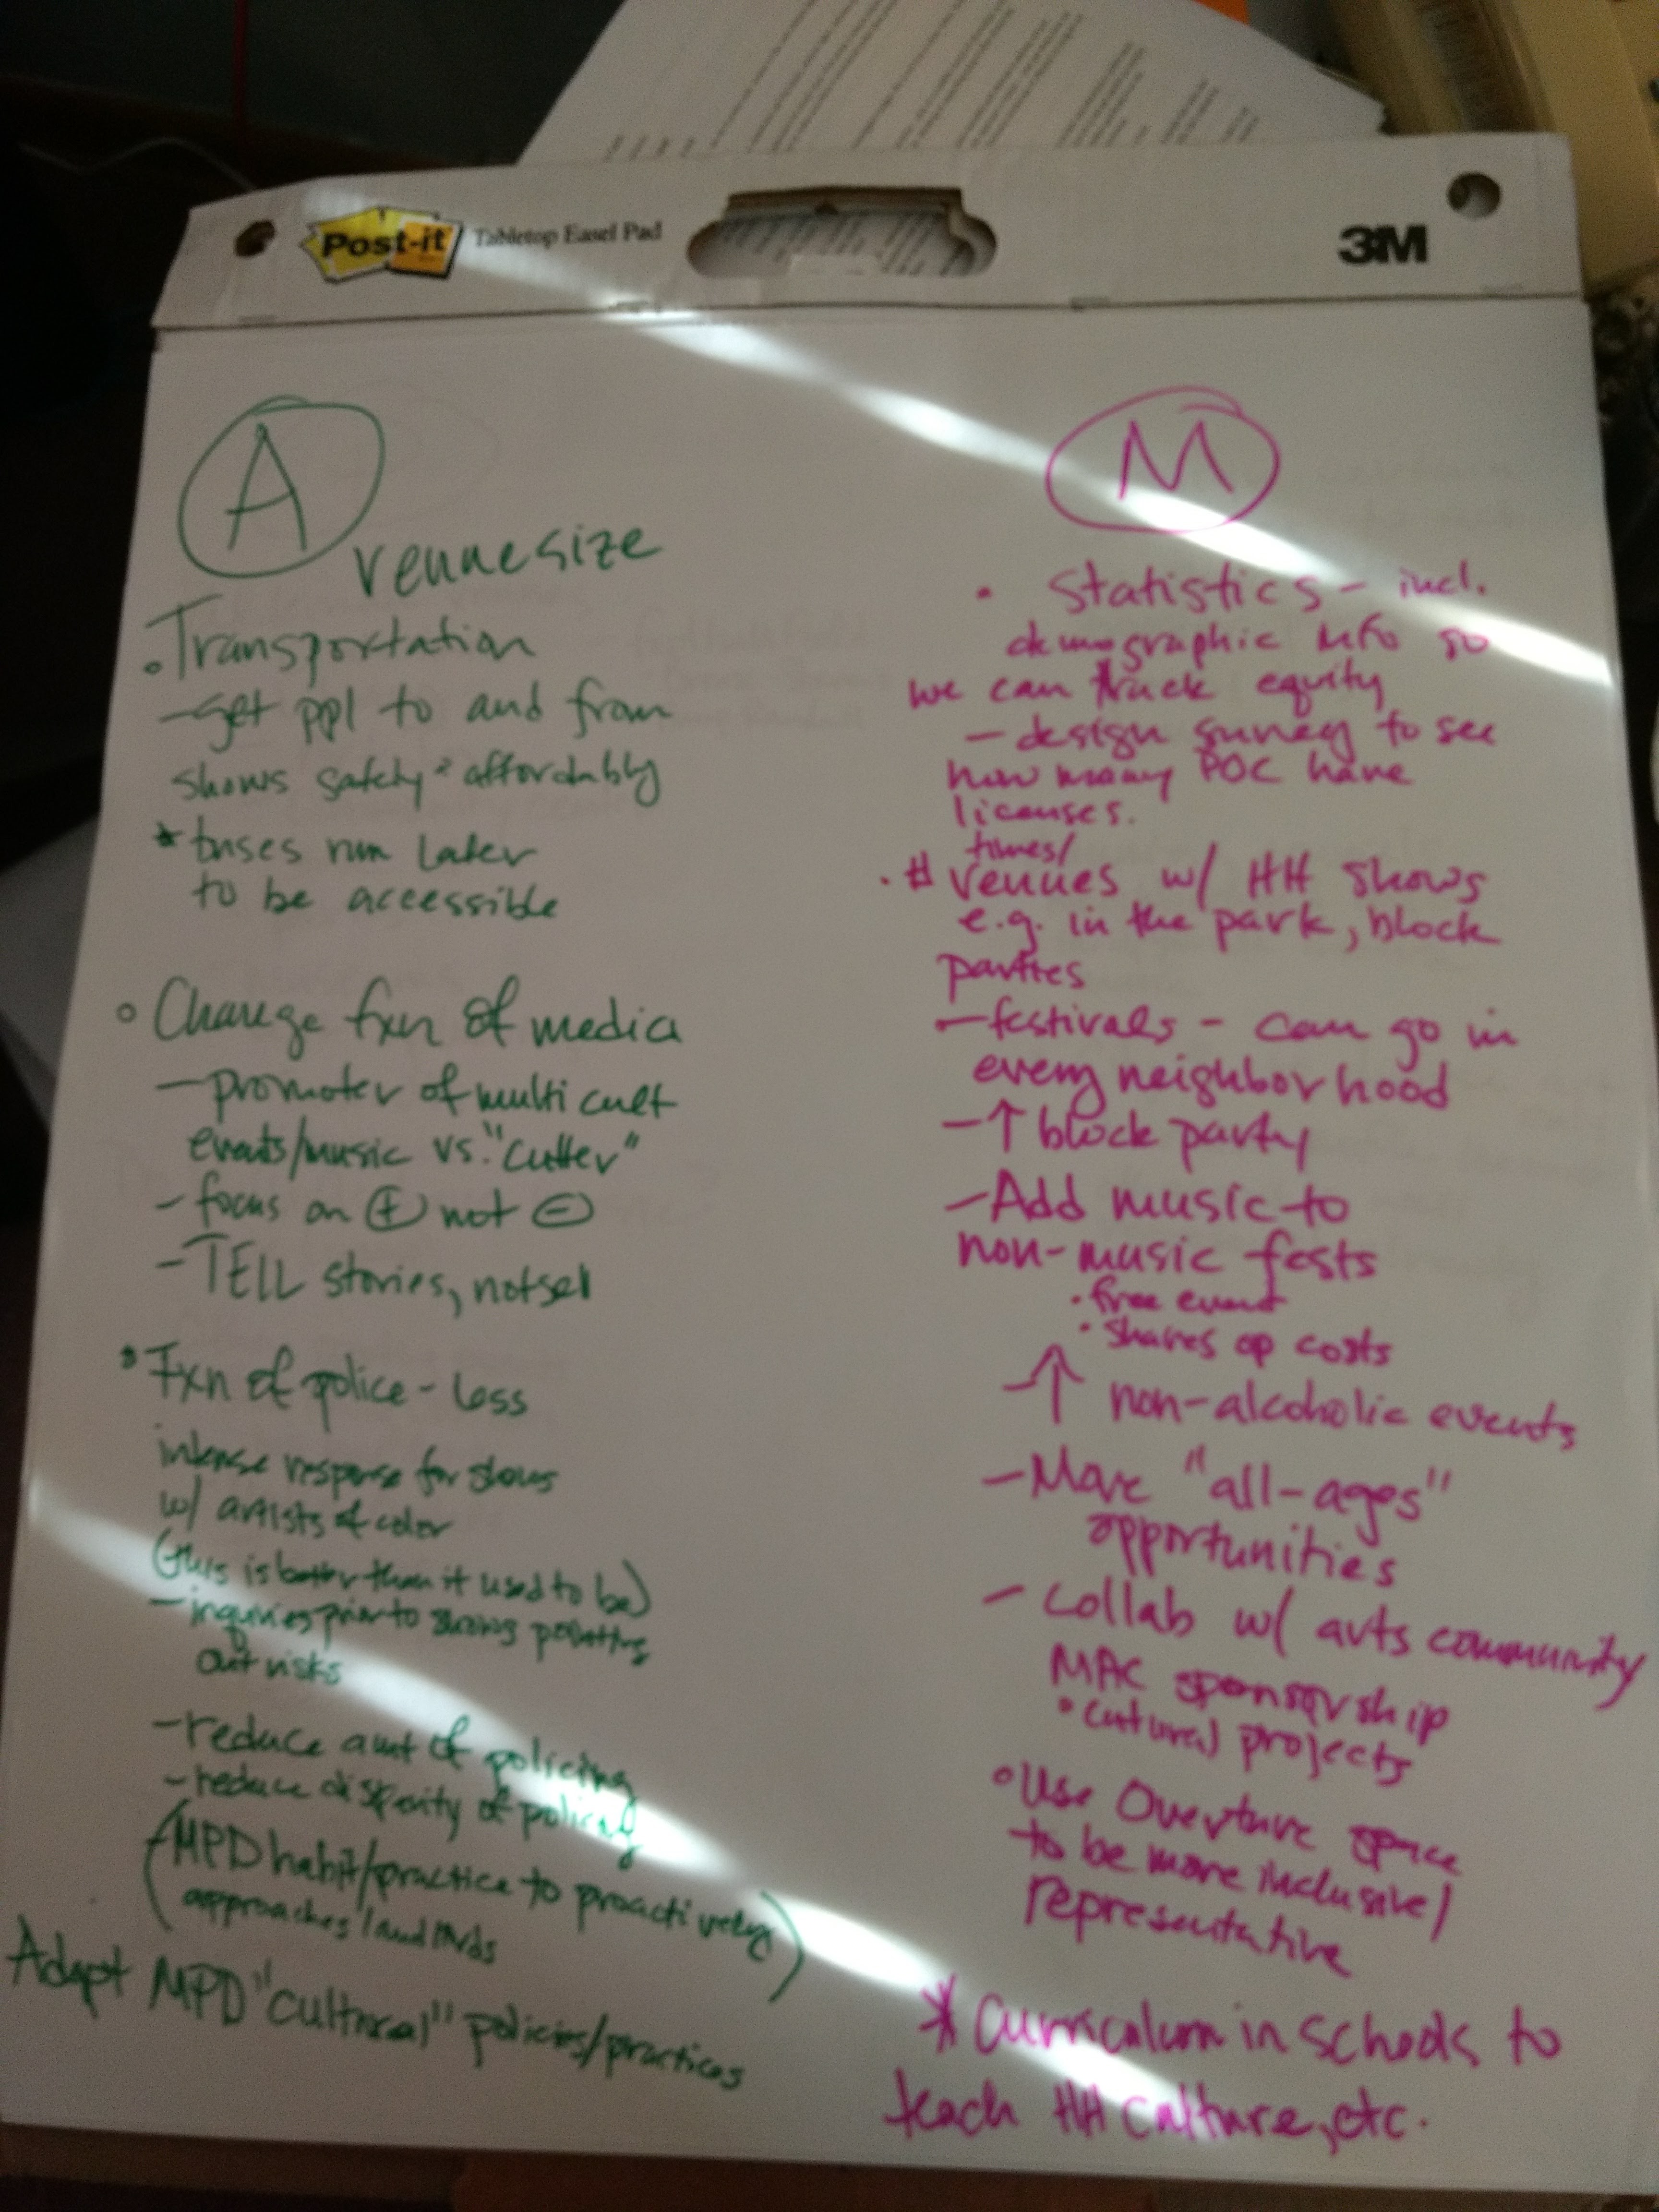 Post-it Tabletop Easel Pad
3M
A
venue size
• Transportation
- get ppl to and from
shows safely + affordably
* buses run later
to be accessible
• Change fxn of media
- promoter of multi cult
events/music vs. "cutter"
- focus on ⊕ not ⊖
- TELL stories, not sel
• Fxn of police - less
intense response for shows
w/ artists of color
(this is better than it used to be)
- inquiries prior to shows pointing
out risks
- reduce amt of policing
- reduce disparity of policing
(MPD habit/practice to proactively
approaches
Adapt MPD "cultural" policies/practices)
M
• Statistics - incl.
demographic info so
we can track equity
- design survey to see
how many POC have
licenses.
times/
• # venues w/ HH shows
e.g. in the park, block
parties
- festivals - can go in
every neighborhood
- ↑ block party
- Add music to
non-music fests
• free event
• shares op costs
- ↑ non-alcoholic events
- More "all-ages"
opportunities
- collab w/ arts community
MAC sponsorship
• cutural projects
• Use Overture space
to be more inclusive/
representative
* Curriculum in schools to
teach HH culture, etc.